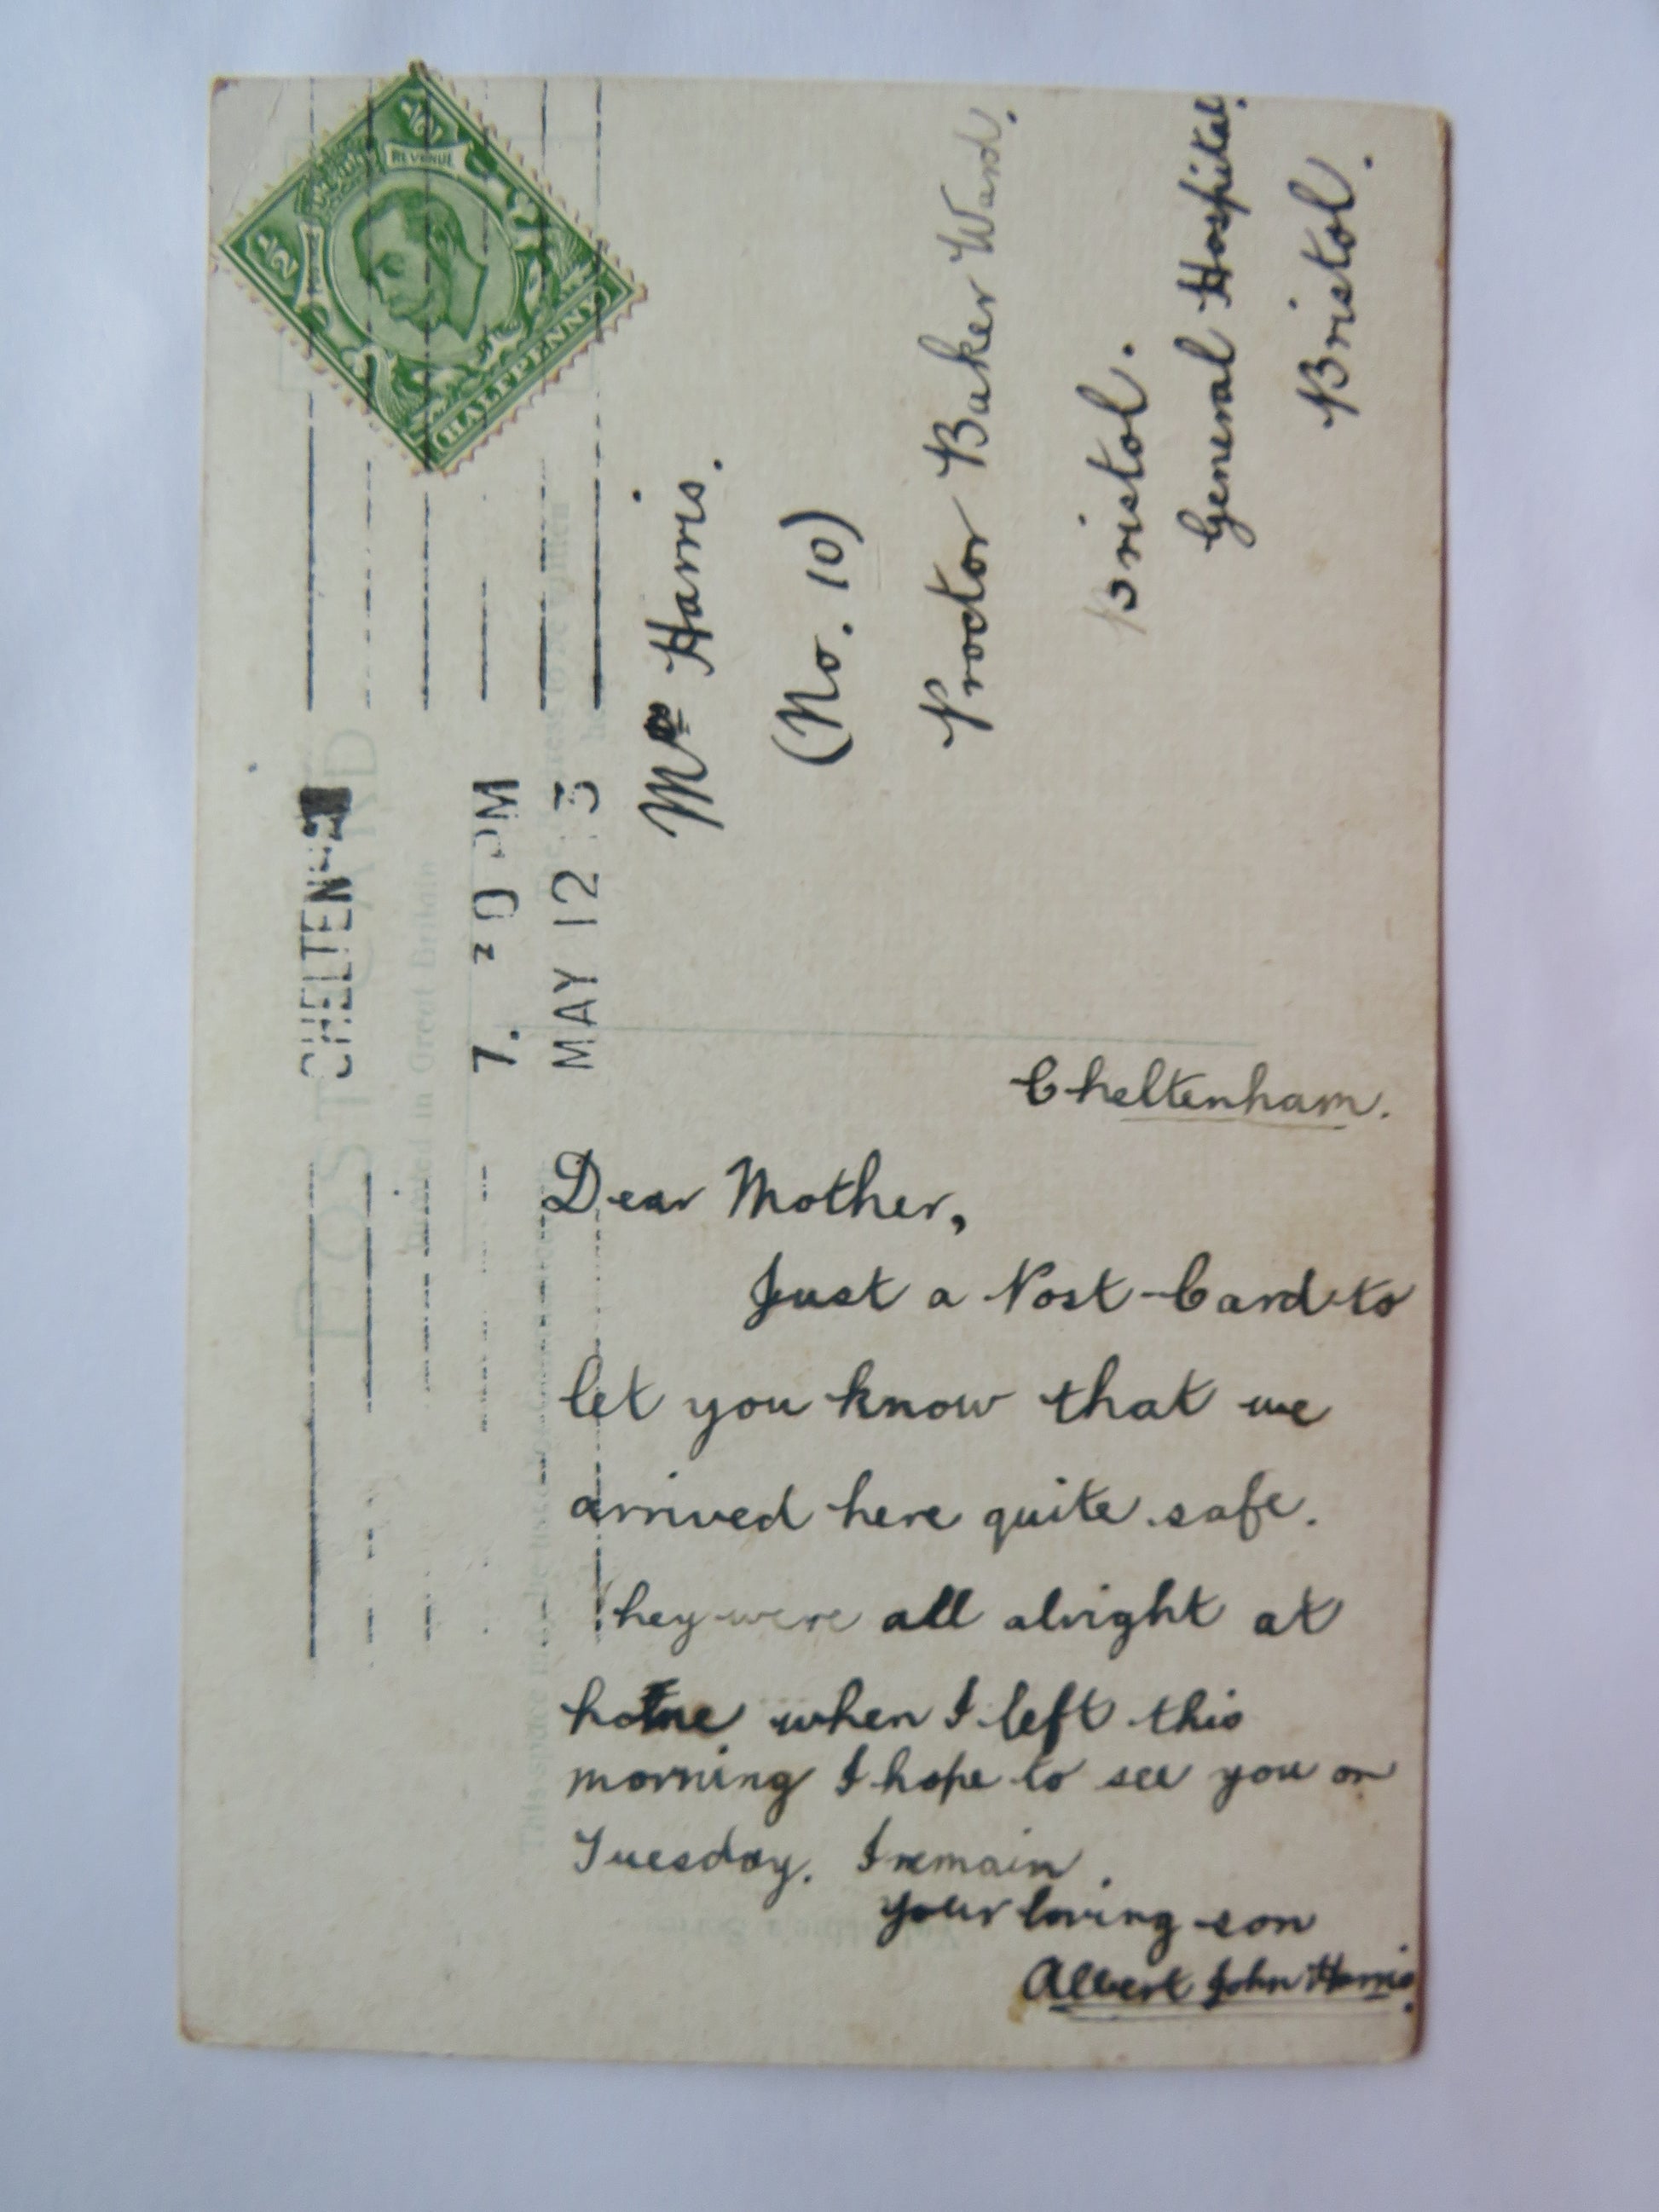 POST CARD
Printed in Great Britain
CHELTENHA
7. 20 PM
MAY 12 13
REVENUE
1/2
1/2
HALFPENNY
Mrs Harris.
(No. 10)
Proctor Baker Ward.
Bristol.
General Hospital.
Bristol.
Cheltenham.
Dear Mother,
Just a Post-Card to
let you know that we
arrived here quite safe.
They were all alright at
home when I left this
morning I hope to see you on
Tuesday. I remain.
your loving son
Albert John Harris.